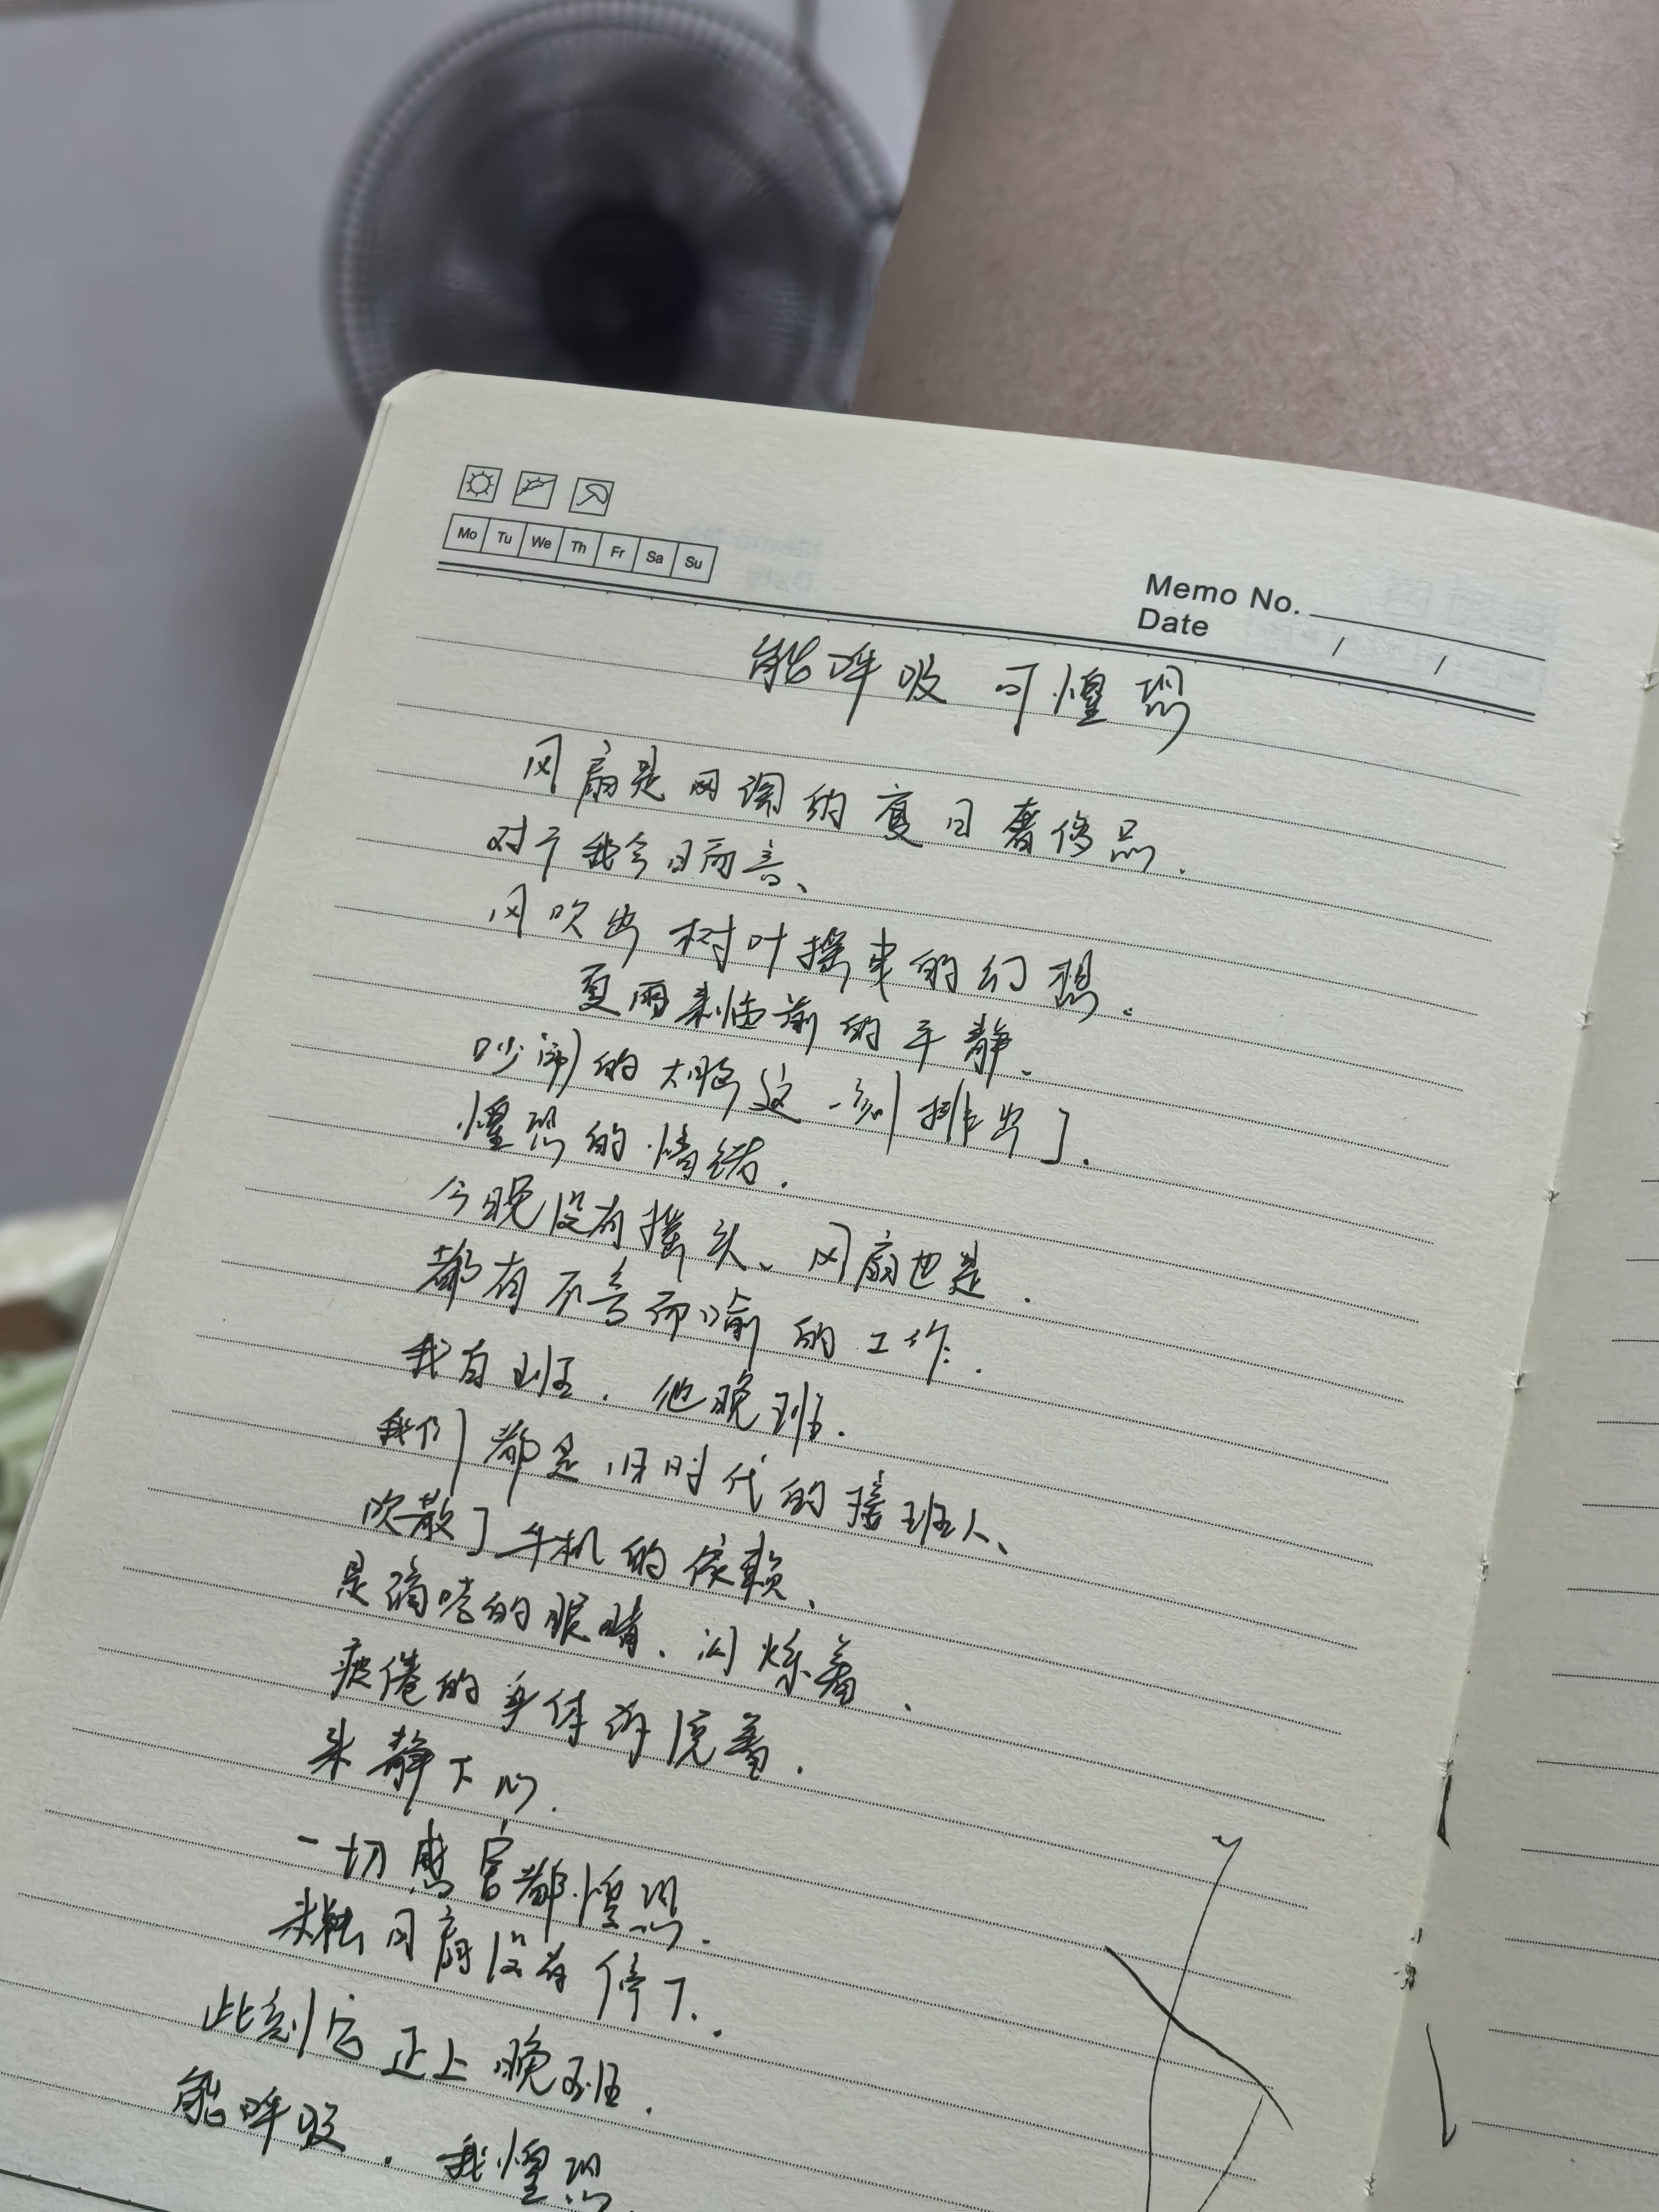 Mo Tu We Th Fr Sa Su
Memo No.
Date / /
能呼吸 可惶恐
风扇是网调的夏日奢侈品.
对于我今日而言、
风吹出树叶摇曳的幻想。
夏雨来临前的平静、
吵闹的大脑这一刻排出了.
惶恐的情绪.
今晚没有摇头、风扇也是.
都有不言而喻的工作.
我白班.他晚班.
我们都是旧时代的接班人、
吹散了手机的依赖、
是滴的眼睛、闪烁着、
疲倦的身体着.
来静下心.
一切感官都惶恐.
风扇没有停下.
此刻它正上晚班.
能呼吸.我惶恐